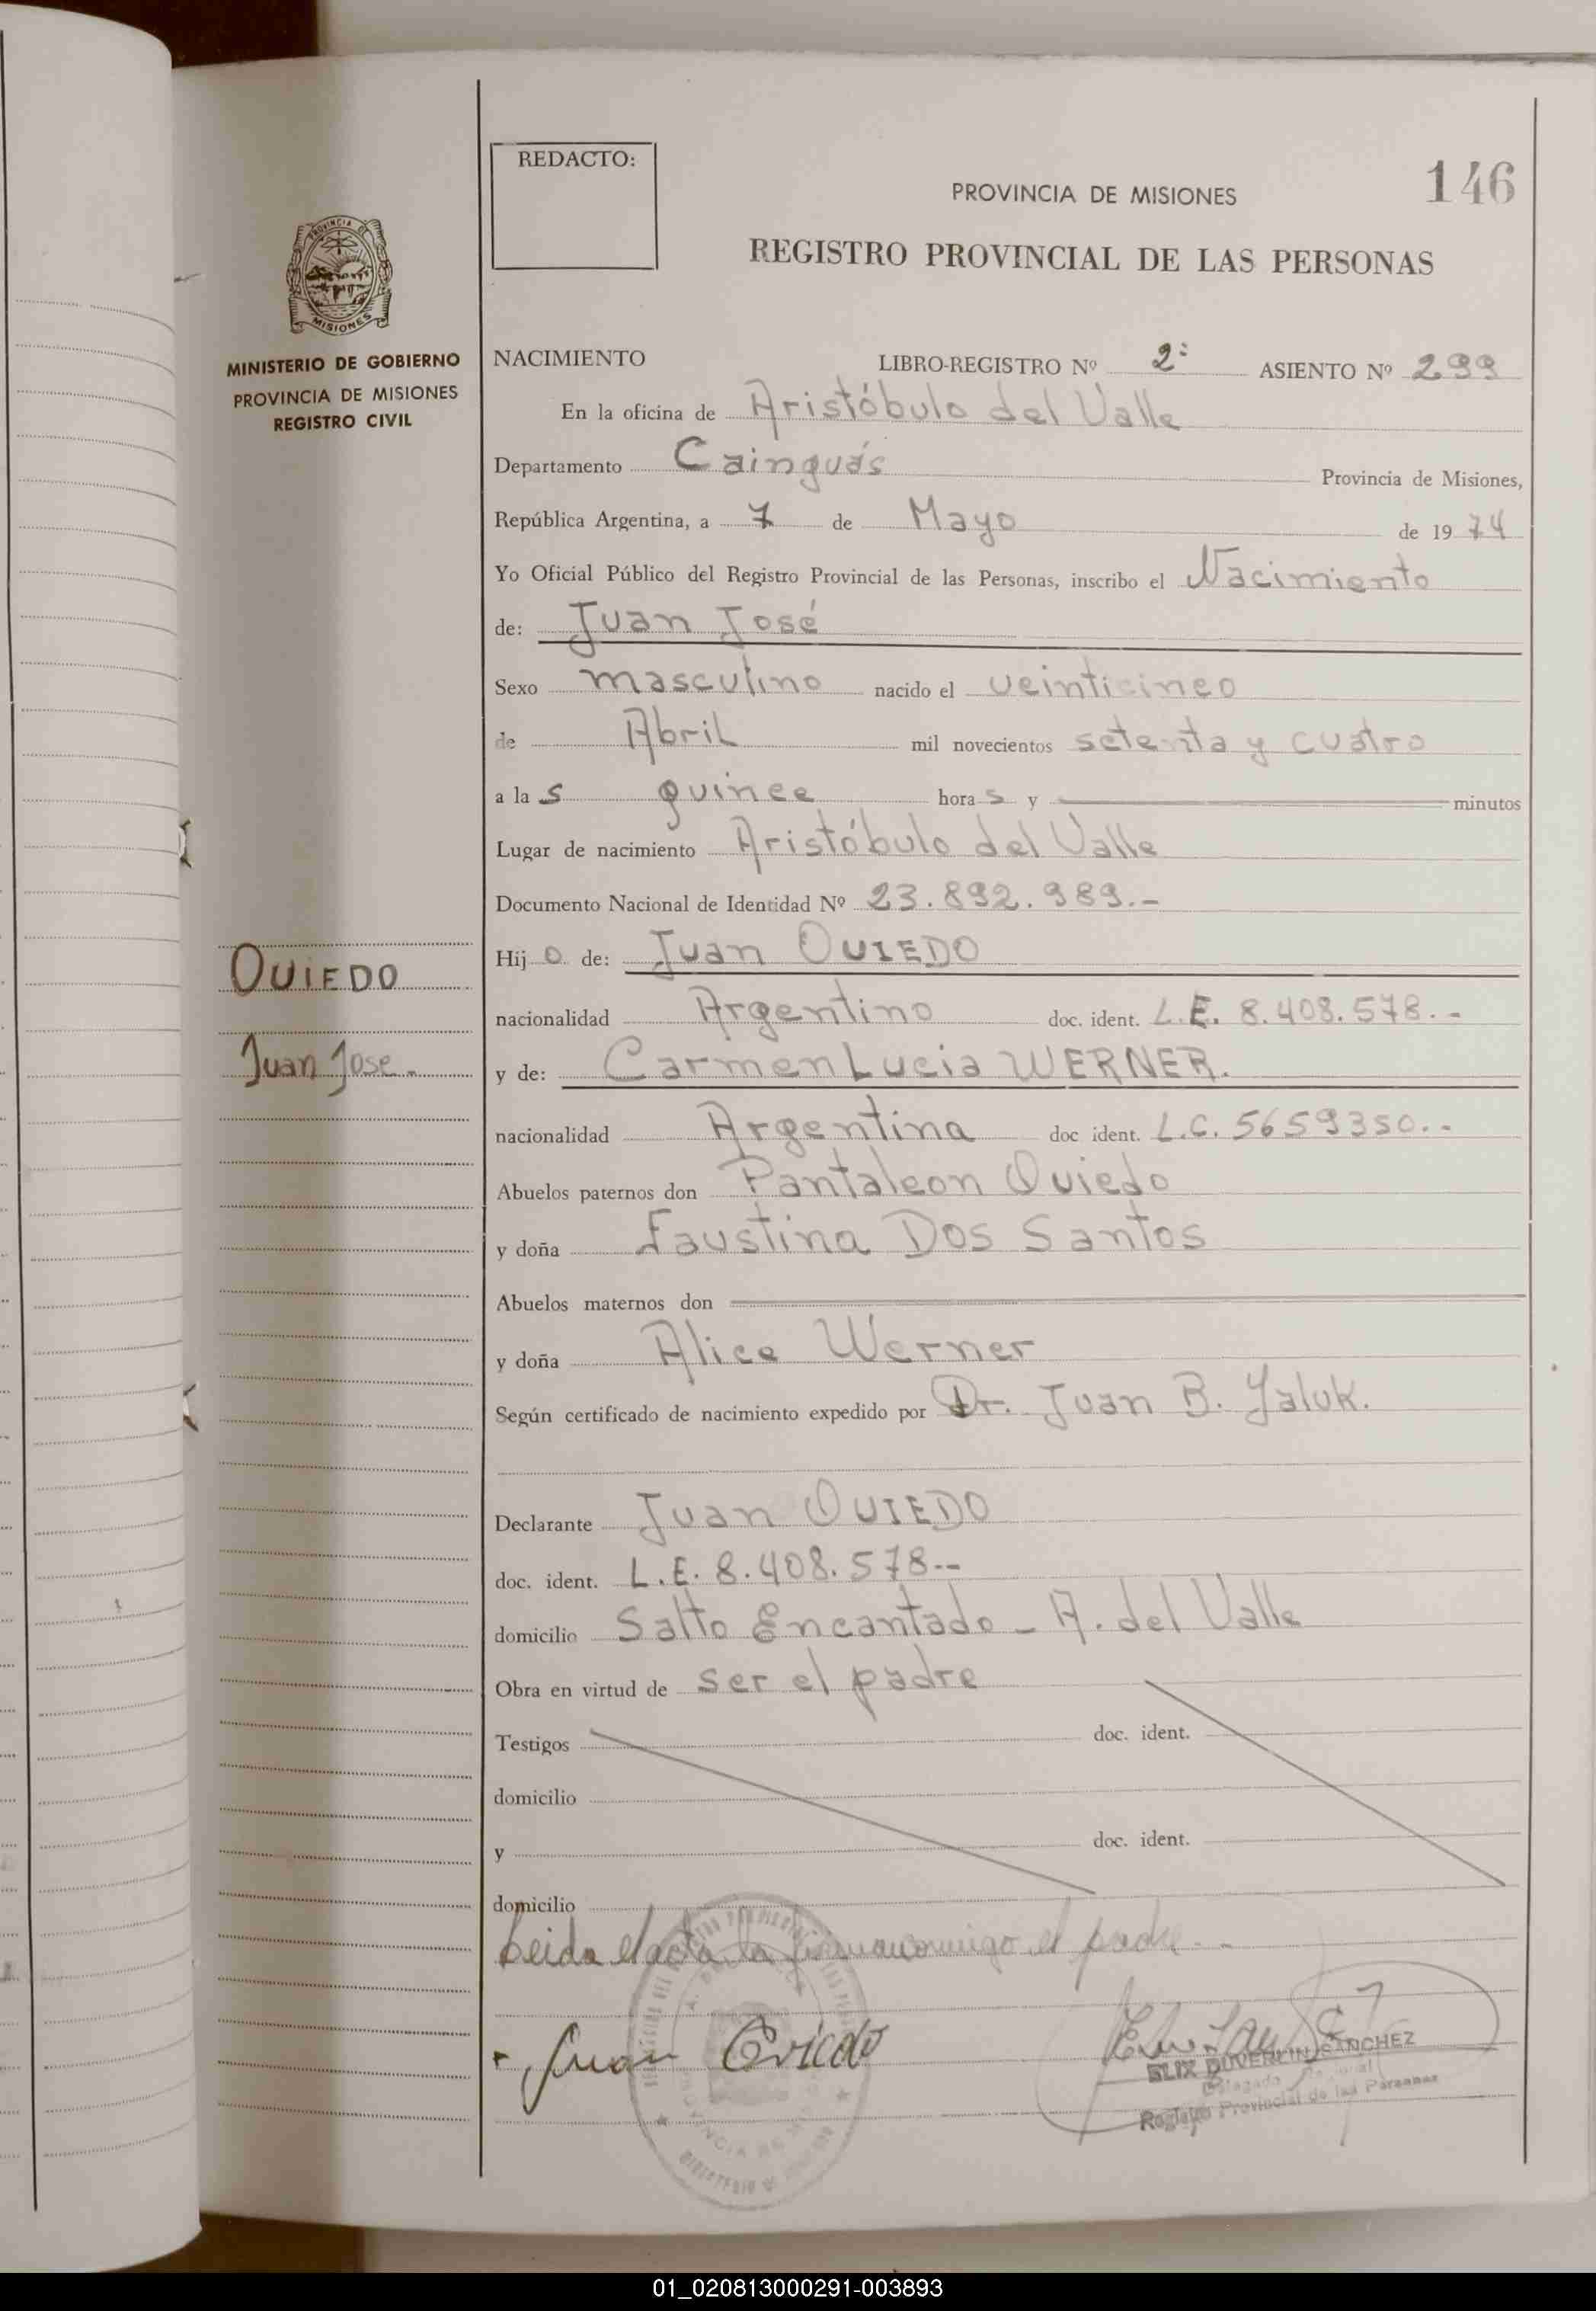 REDACTO:
146
PROVINCIA DE MISIONES
REGISTRO PROVINCIAL DE LAS PERSONAS
PROVINCIA DE
MISIONES
MINISTERIO DE GOBIERNO
PROVINCIA DE MISIONES
REGISTRO CIVIL
NACIMIENTO LIBRO-REGISTRO Nº 2º ASIENTO Nº 299
En la oficina de Aristóbulo del Valle
Departamento Cainguás Provincia de Misiones,
República Argentina, a 7 de Mayo de 1974
Yo Oficial Público del Registro Provincial de las Personas, inscribo el Nacimiento
de: Juan José
Sexo masculino nacido el veinticinco
de Abril mil novecientos setenta y cuatro
a las quince horas y minutos
Lugar de nacimiento Aristóbulo del Valle
Documento Nacional de Identidad Nº 23.892.989.-
OVIEDO
Juan Jose.
Hijo de: Juan OVIEDO
nacionalidad Argentino doc. ident. L.E. 8.408.578.-
y de: Carmen Lucia WERNER.
nacionalidad Argentina doc ident. L.C. 5659350.-
Abuelos paternos don Pantaleon Oviedo
y doña Faustina Dos Santos
Abuelos maternos don
y doña Alice Werner
Según certificado de nacimiento expedido por Dr. Juan B. Yaluk.
Declarante Juan OVIEDO
doc. ident. L.E. 8.408.578--
domicilio Salto Encantado - A. del Valle
Obra en virtud de ser el padre
Testigos doc. ident.
domicilio
y doc. ident.
domicilio
Leida el acta la firma conmigo el padre--
Juan Oviedo
SANCHEZ
Registro Provincial de las Personas
01_020813000291-003893